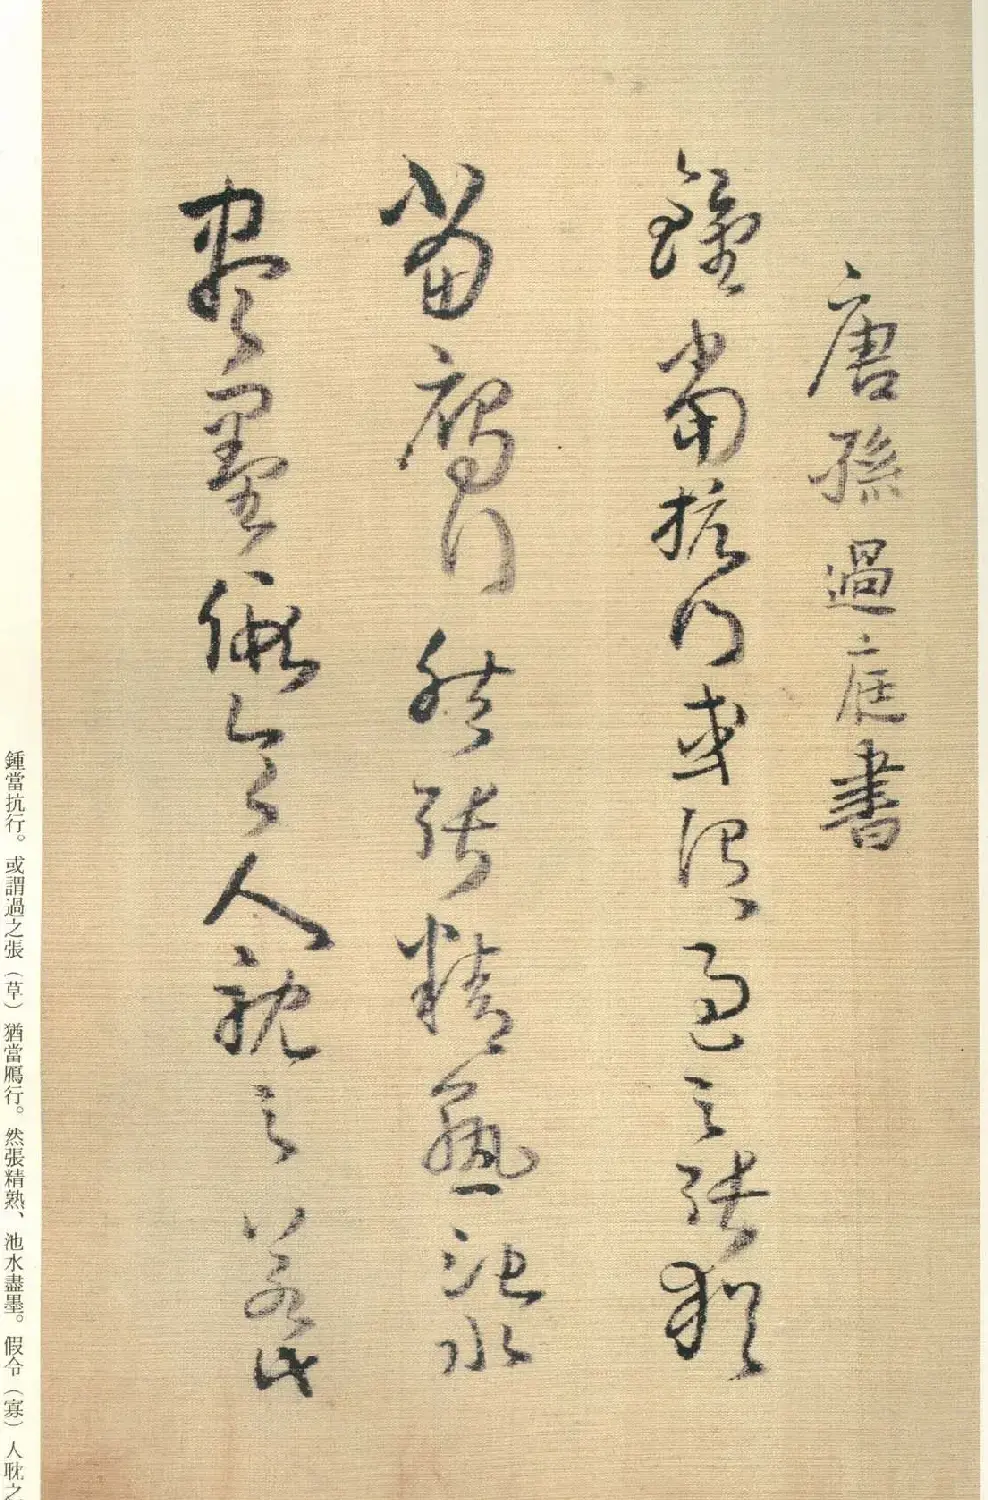 唐孫過庭書
鍾當抗行或謂過之張猶
當鴈行然張精熟池水
盡墨假令人耽之若此
鍾當抗行。或謂過之張（草）猶當鴈行。然張精熟、池水盡墨。假令（寡）人耽之